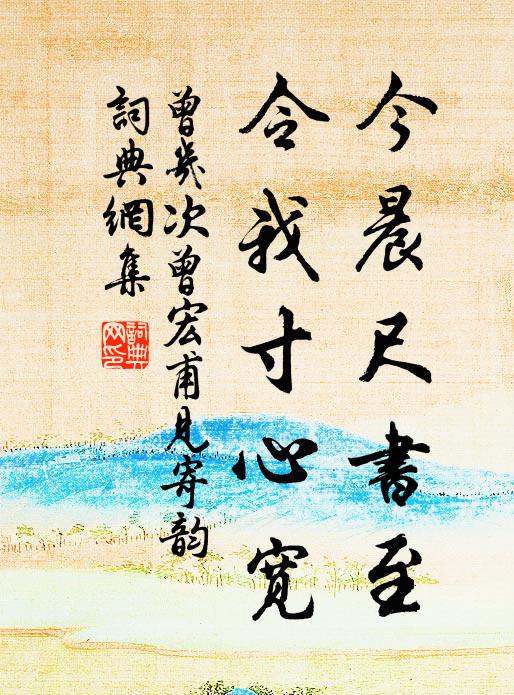 今晨尺書至
令我寸心寬
曾幾次曾宏甫見寄韵
詞典網集
詞典
网印